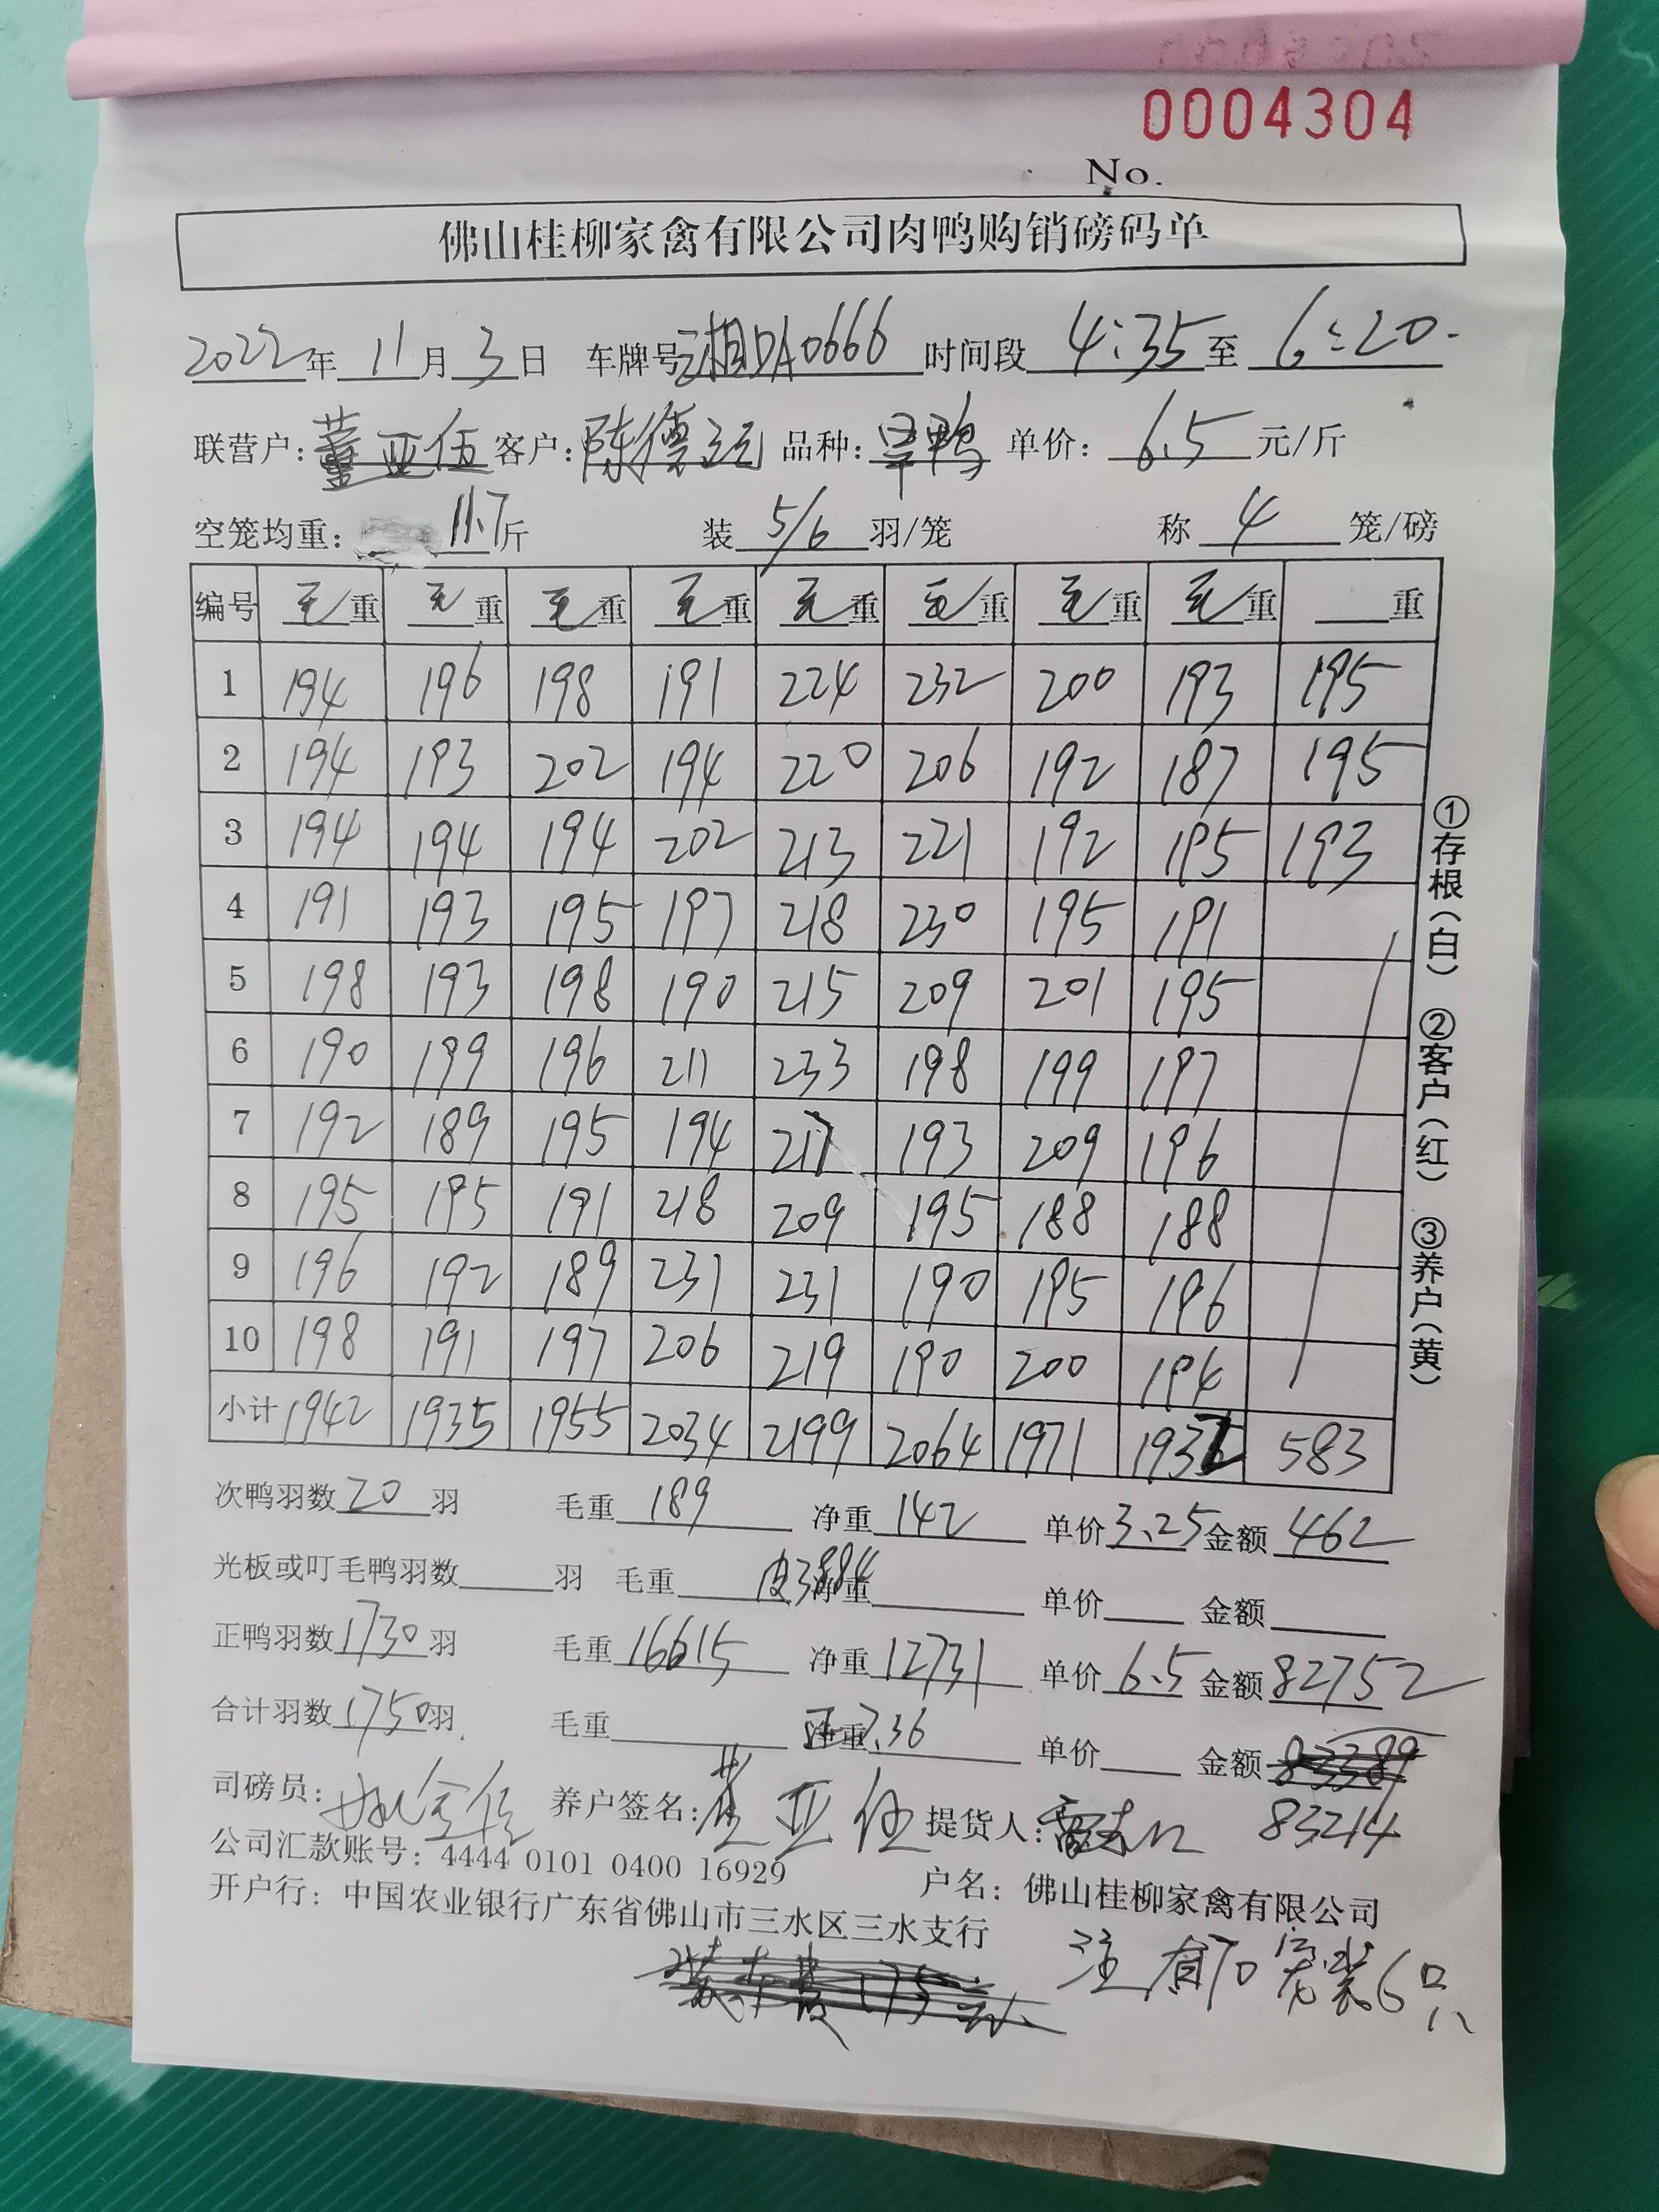 0004304
No.
佛山桂柳家禽有限公司肉鸭购销磅码单
2022年 11月 3日 车牌号 湘DA0666 时间段 4:35 至 6:20
联营户: 董亚伍 客户: 陈德 品种: 旱鸭 单价: 6.5 元/斤
空笼均重: 11.7斤 装 5/6 羽/笼 称 4 笼/磅
编号 毛重 毛重 毛重 毛重 毛重 毛重 毛重 毛重 重
1 194 196 198 191 224 232 200 193 195
2 194 193 202 194 220 206 192 187 195
3 194 194 194 202 213 221 192 195 193
4 191 193 195 197 218 230 195 191
5 198 193 198 190 215 209 201 195
6 190 199 196 211 233 198 199 197
7 192 189 195 194 217 193 209 196
8 195 195 191 218 209 195 188 188
9 196 192 189 231 231 190 195 196
10 198 191 197 206 219 190 200 194
小计 1942 1935 1955 2034 2199 2064 1971 1932 583
①存根(白) ②客户(红) ③养户(黄)
次鸭羽数 20 羽 毛重 189 净重 142 单价 3.25 金额 462
光板或叮毛鸭羽数 羽 毛重 皮3884 净重 单价 金额
正鸭羽数 1730 羽 毛重 16615 净重 12731 单价 6.5 金额 82752
合计羽数 1750 羽 毛重 净重 7.36 单价 金额 83389
司磅员: 养户签名: 董亚伍 提货人: 83214
公司汇款账号: 4444 0101 0400 16929 户名: 佛山桂柳家禽有限公司
开户行: 中国农业银行广东省佛山市三水区三水支行
注 有70笼装6只